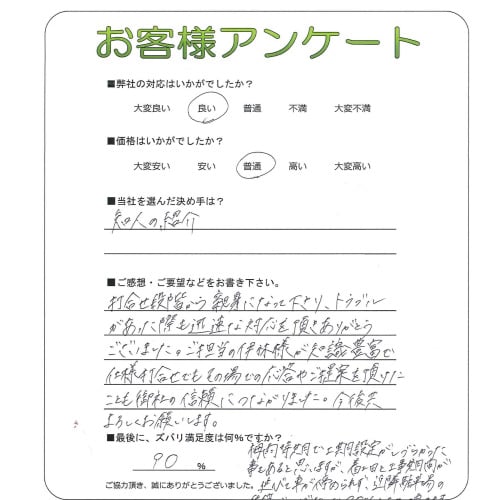 お客様アンケート
■弊社の対応はいかがでしたか？
大変良い 良い 普通 不満 大変不満
■価格はいかがでしたか？
大変安い 安い 普通 高い 大変高い
■当社を選んだ決め手は？
知人の紹介
■ご感想・ご要望などをお書き下さい。
打合せ段階から親身になって下さり、トラブル
があった際も迅速な対応を頂きありがとう
ございました。ご担当の伊林様が知識豊富で
仕様打合せでもその場での応答やご提案を頂けた
ことも御社の信頼につながりました。今後共
よろしくお願いします。
■最後に、ズバリ満足度は何%ですか？
90 %
で工期設定がしづらかった
事もあると思いますが、
ご協力頂き、誠にありがとうございました。